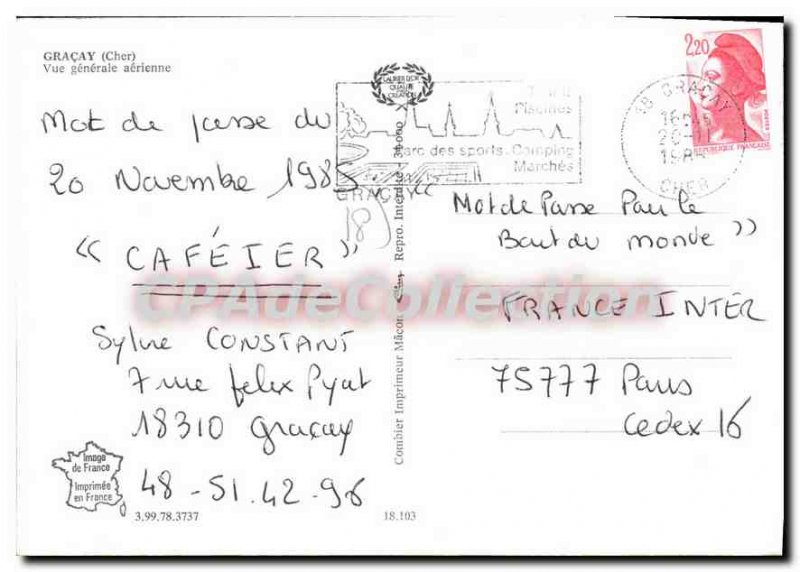 GRAÇAY (Cher)
Vue générale aérienne
Mot de passe du
20 Novembre 1985
" CAFÉIER "
Sylvie CONSTANT
7 rue felix Pyat
18310 Graçay
48 - 51.42.96
Image
de France
Imprimée
en France
3.99.78.3737
18.103
Combier Imprimeur Mâcon
Repro. Interdite
LAURIER D'OR
QUALITÉ
CRÉATION
Piscines
Parc des sports. Camping
Marchés
GRAÇAY
18
2,20
REPUBLIQUE FRANÇAISE
18 GRAÇAY
20-11
1985
CHER
" Mot de Passe Pour le
Bout du monde "
FRANCE INTER
75777 Paris
Cedex 16
CPAdeCollection